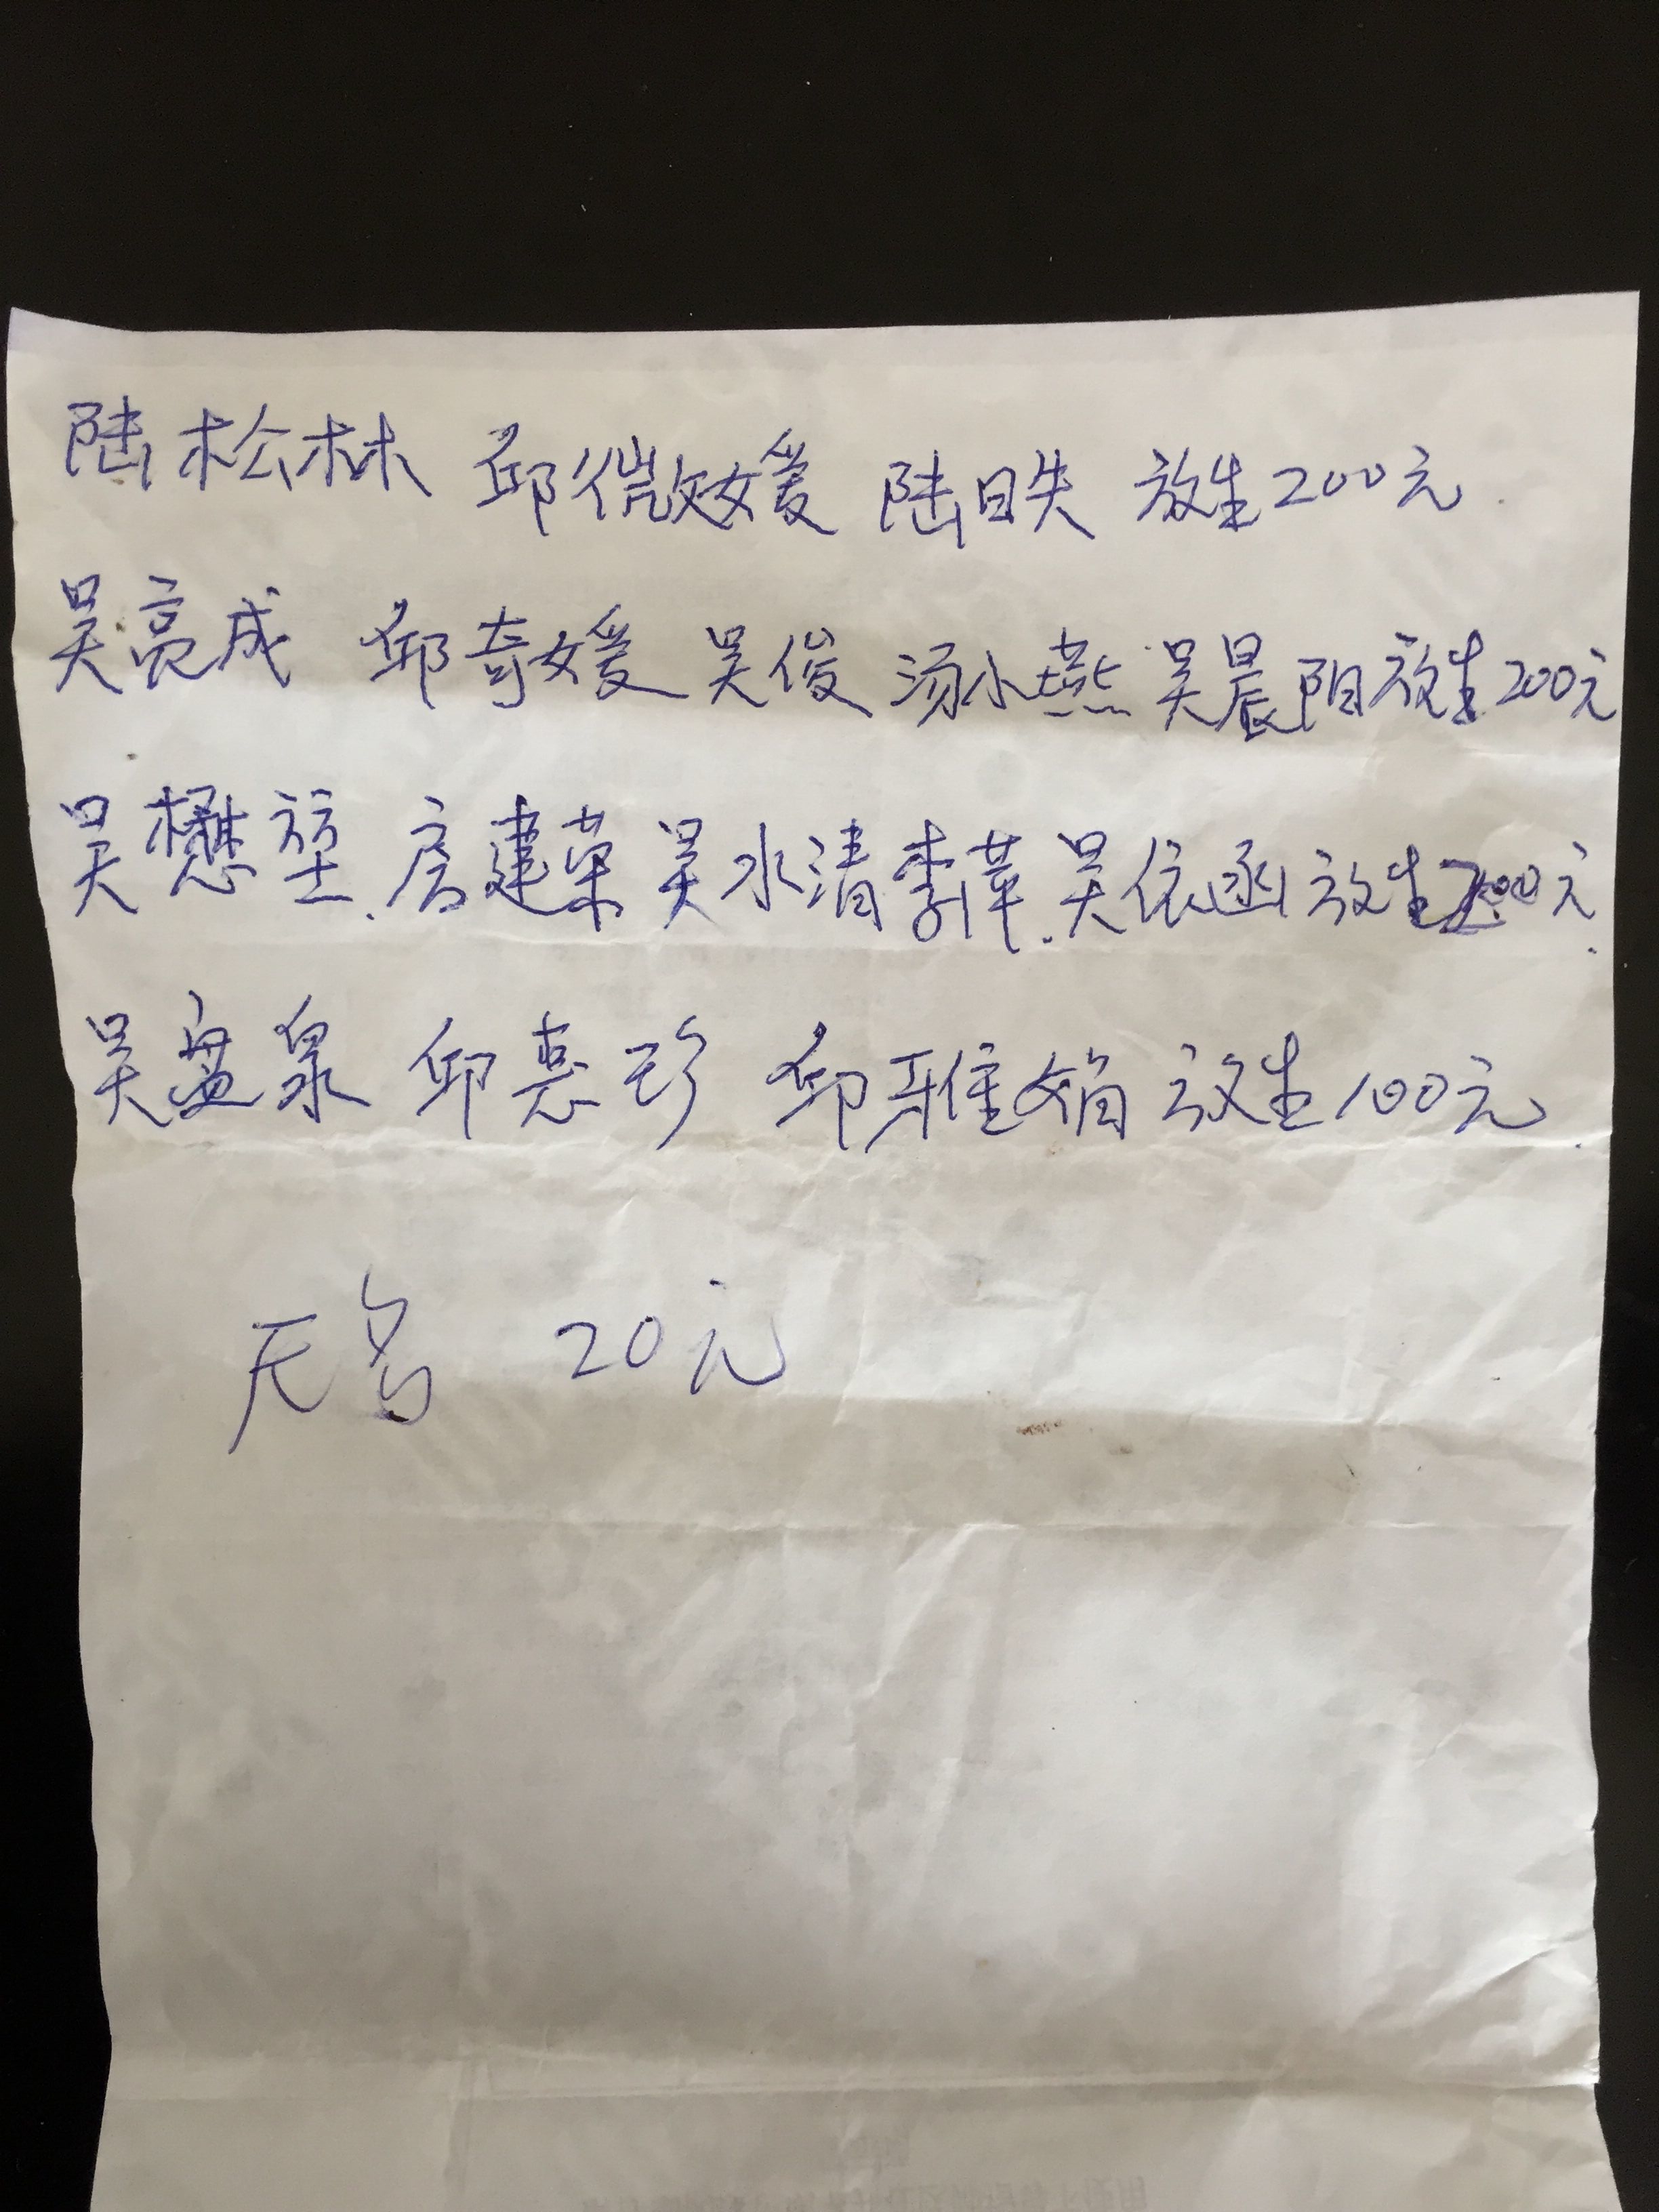 陆松林 邱微媛 陆昳 放生200元
吴亮成 邱奇媛 吴俊 汤小燕 吴晨阳放生200元
吴懋 房建荣 吴水清 李萍 吴依函 放生200元
吴盈泉 邱惠珍 邱雅娟 放生100元
无名 20元